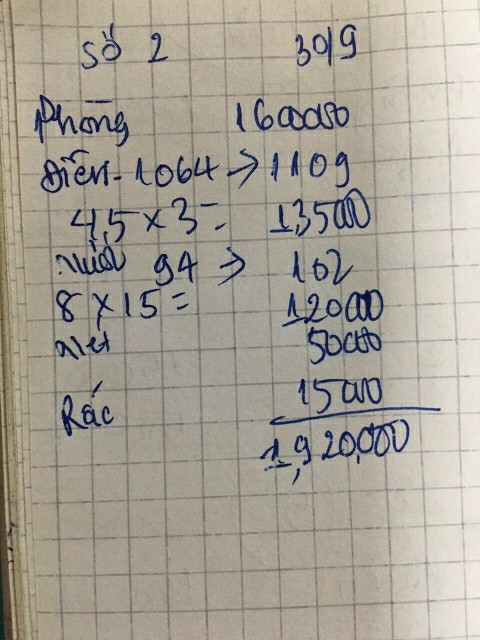 Số 2 30/9
Phòng 1600000
Điện - 1064 → 1109
45 x 3 = 135000
Nước 94 → 102
8 x 15 = 120000
Net 50000
Rác 15000
1,920,000